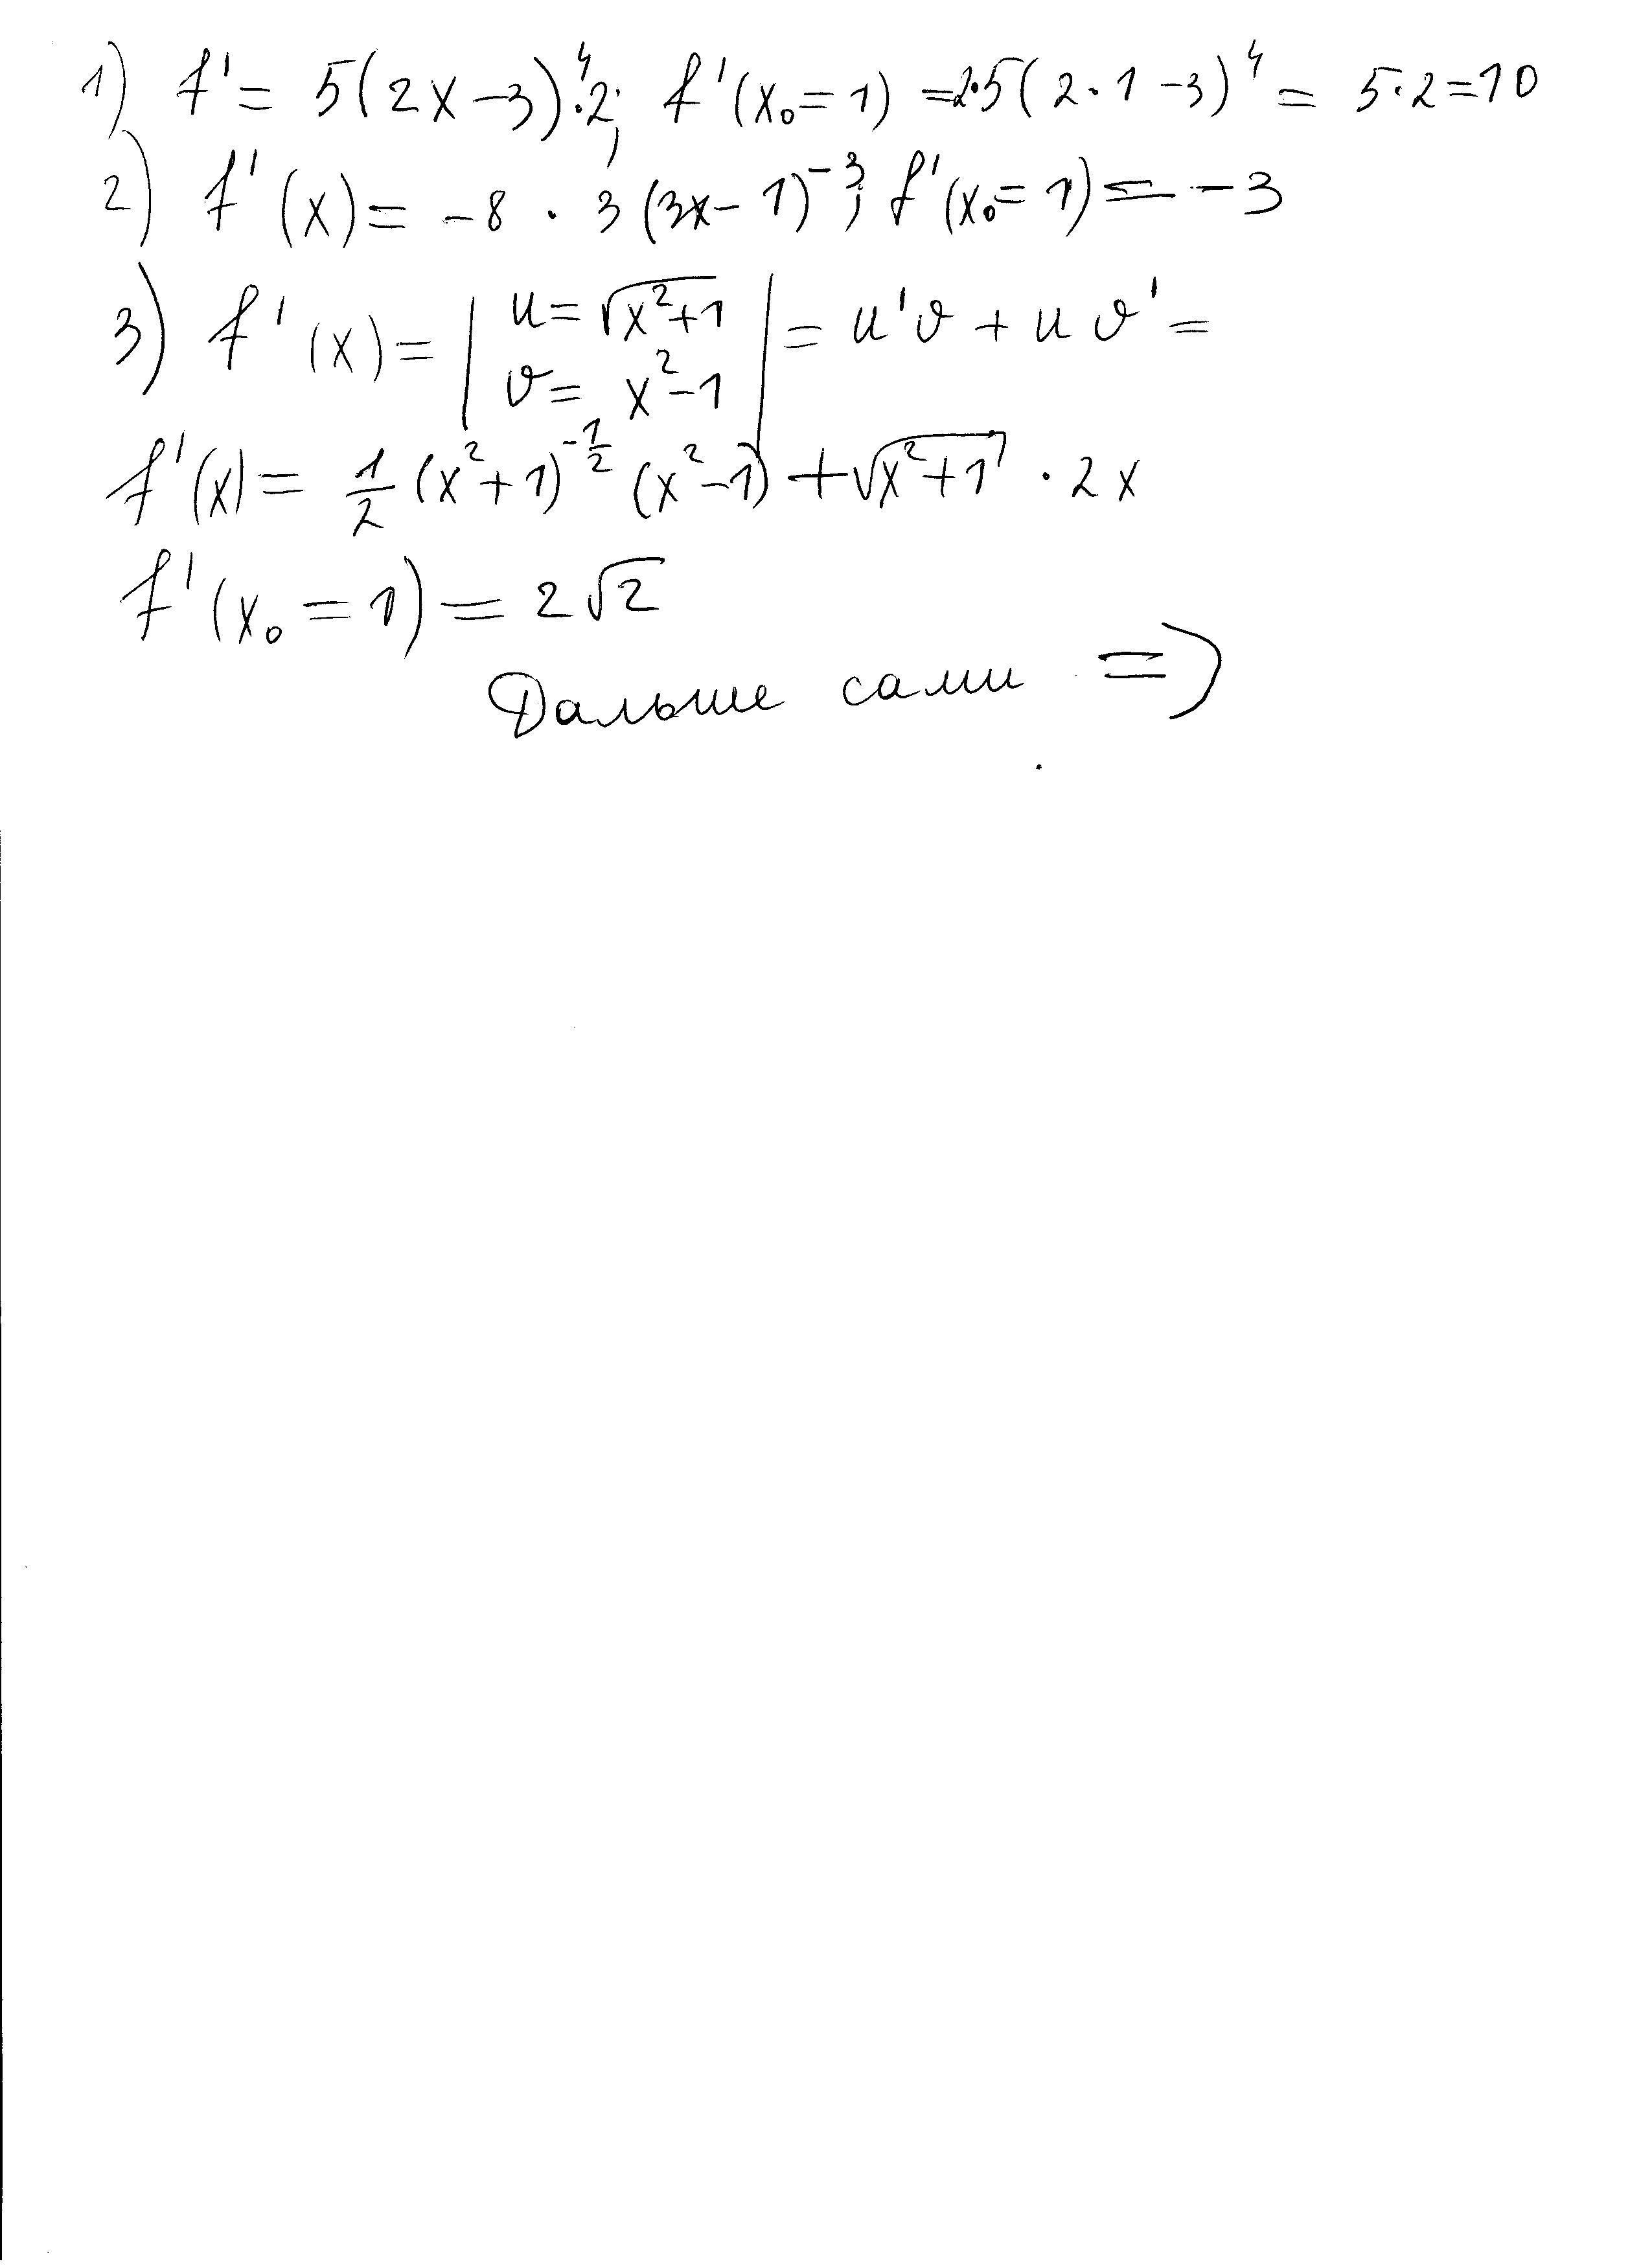 1) f' = 5(2x-3)⁴·2; f'(x₀=1) =2·5(2·1-3)⁴ = 5·2=10
2) f'(x)= -8 · 3(3x-1)⁻³; f'(x₀=1)= -3
3) f'(x)= | u=√(x²+1) v= x²-1 | = u'v + u v' =
f'(x)= 1/2 (x²+1)^(-1/2) (x²-1) + √(x²+1) · 2x
f'(x₀=1)= 2√2
Дальше сами =)